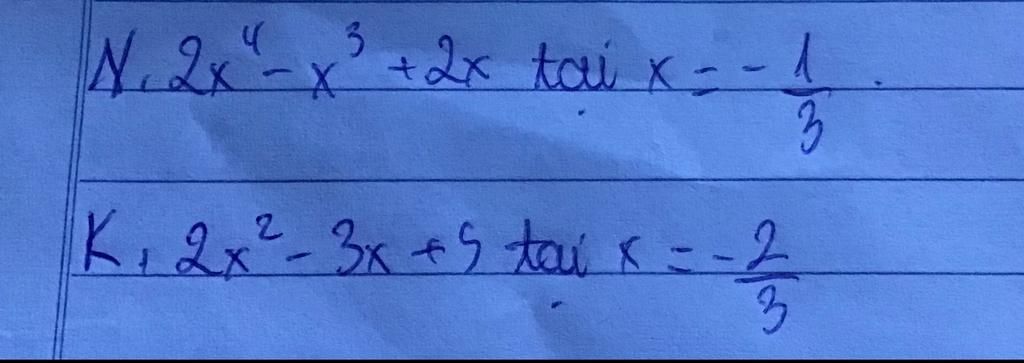 N, 2x⁴ - x³ + 2x tại x = - 1/3.
K, 2x² - 3x + 5 tại x = - 2/3